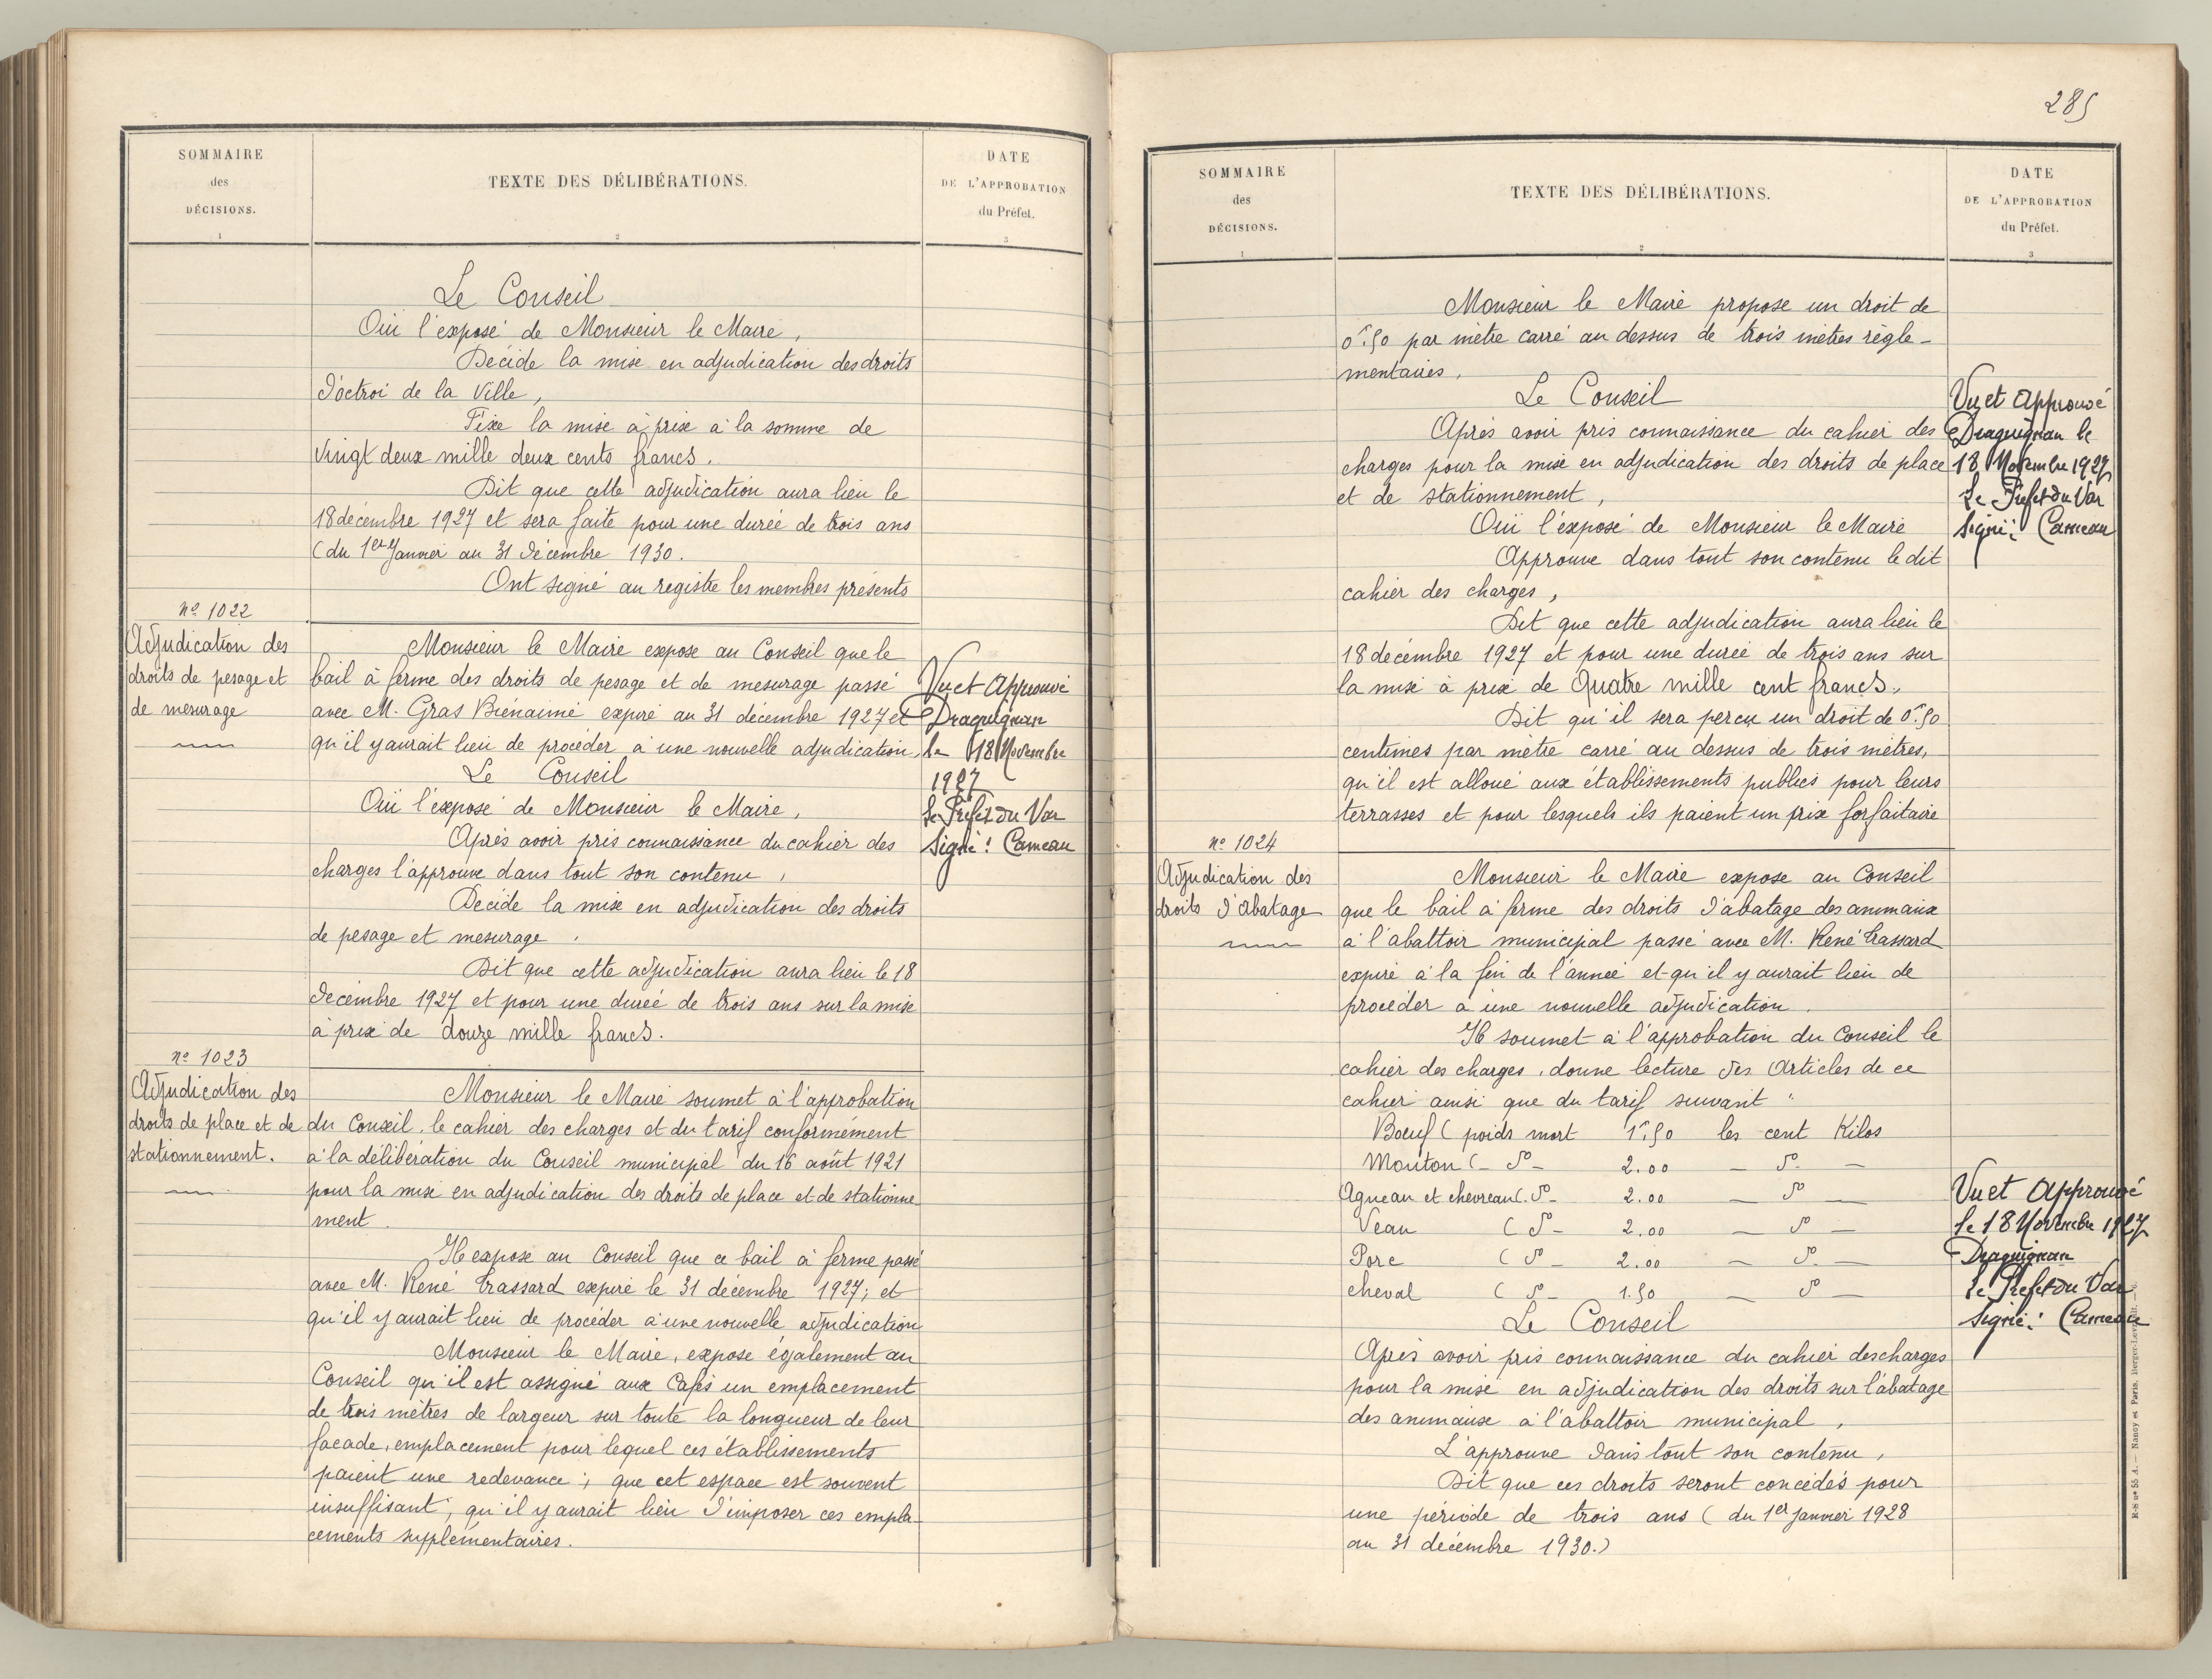 SOMMAIRE
des
DÉCISIONS.
1
TEXTE DES DÉLIBÉRATIONS.
2
DATE
DE L'APPROBATION
du Préfet.
3
Le Conseil
Oui l'exposé de Monsieur le Maire,
Décide la mise en adjudication des droits
d'octroi de la Ville,
Fixe la mise à prix à la somme de
Vingt deux mille deux cents francs.
Dit que cette adjudication aura lieu le
18 décembre 1927 et sera faite pour une durée de trois ans
(du 1er Janvier au 31 décembre 1930.
Ont signé au registre les membres présents
No 1022
Adjudication des
droits de pesage et
de mesurage
Monsieur le Maire expose au Conseil que le
bail à ferme des droits de pesage et de mesurage passé
avec M. Gras Bienaimé expire au 31 décembre 1927 et
qu'il y aurait lieu de procéder à une nouvelle adjudication.
Le Conseil
Oui l'exposé de Monsieur le Maire,
Après avoir pris connaissance du cahier des
charges l'approuve dans tout son contenu,
Décide la mise en adjudication des droits
de pesage et mesurage.
Dit que cette adjudication aura lieu le 18
décembre 1927 et pour une durée de trois ans sur la mise
à prix de douze mille francs.
Vu et Approuvé
Draguignan
le 18 Novembre
1927
Le Préfet du Var
Signé: Cameau
No 1023
Adjudication des
droits de place et de
stationnement.
Monsieur le Maire soumet à l'approbation
du Conseil, le cahier des charges et du tarif conformément
à la délibération du Conseil municipal du 16 août 1921
pour la mise en adjudication des droits de place et de stationne-
ment.
Il expose au Conseil que ce bail à ferme passé
avec M. René Trassard expire le 31 décembre 1927; et
qu'il y aurait lieu de procéder à une nouvelle adjudication
Monsieur le Maire, expose également au
Conseil qu'il est assigné aux Cafés un emplacement
de trois mètres de largeur sur toute la longueur de leur
façade, emplacement pour lequel ces établissements
paient une redevance; que cet espace est souvent
insuffisant, qu'il y aurait lieu d'imposer ces empla-
cements supplémentaires.
285
SOMMAIRE
des
DÉCISIONS.
1
TEXTE DES DÉLIBÉRATIONS.
2
DATE
DE L'APPROBATION
du Préfet.
3
Monsieur le Maire propose un droit de
0f.50 par mètre carré au dessus de trois mètres règle-
mentaires.
Le Conseil
Après avoir pris connaissance du cahier des
charges pour la mise en adjudication des droits de place
et de stationnement,
Oui l'exposé de Monsieur le Maire
Approuve dans tout son contenu le dit
cahier des charges,
Dit que cette adjudication aura lieu le
18 décembre 1927 et pour une durée de trois ans sur
la mise à prix de Quatre mille cent francs.
Dit qu'il sera perçu un droit de 0f.50
centimes par mètre carré au dessus de trois mètres,
qu'il est alloué aux établissements publics pour leurs
terrasses et pour lesquels ils paient un prix forfaitaire
Vu et Approuvé
Draguignan le
18 Novembre 1927
Le Préfet du Var
Signé: Cameau
No 1024
Adjudication des
droits d'abatage
Monsieur le Maire expose au Conseil
que le bail à ferme des droits d'abatage des animaux
à l'abattoir municipal passé avec M. René Trassard
expire à la fin de l'année et qu'il y aurait lieu de
procéder à une nouvelle adjudication.
Il soumet à l'approbation du Conseil le
cahier des charges, donne lecture des Articles de ce
cahier ainsi que du tarif suivant:
Boeuf ( poids mort 1f.50 les cent Kilos
Mouton (- do - 2.00 - do -
Agneau et chevreau (. do - 2.00 - do -
Veau ( do - 2.00 - do -
Porc ( do - 2.00 - do. -
cheval ( do - 1.50 - do -
Le Conseil
Après avoir pris connaissance du cahier des charges
pour la mise en adjudication des droits sur l'abatage
des animaux à l'abattoir municipal,
L'approuve dans tout son contenu,
Dit que ces droits seront concédés pour
une période de trois ans ( du 1er janvier 1928
au 31 décembre 1930.)
Vu et Approuvé
le 18 Novembre 1927
Draguignan
Le Préfet du Var
Signé: Cameau